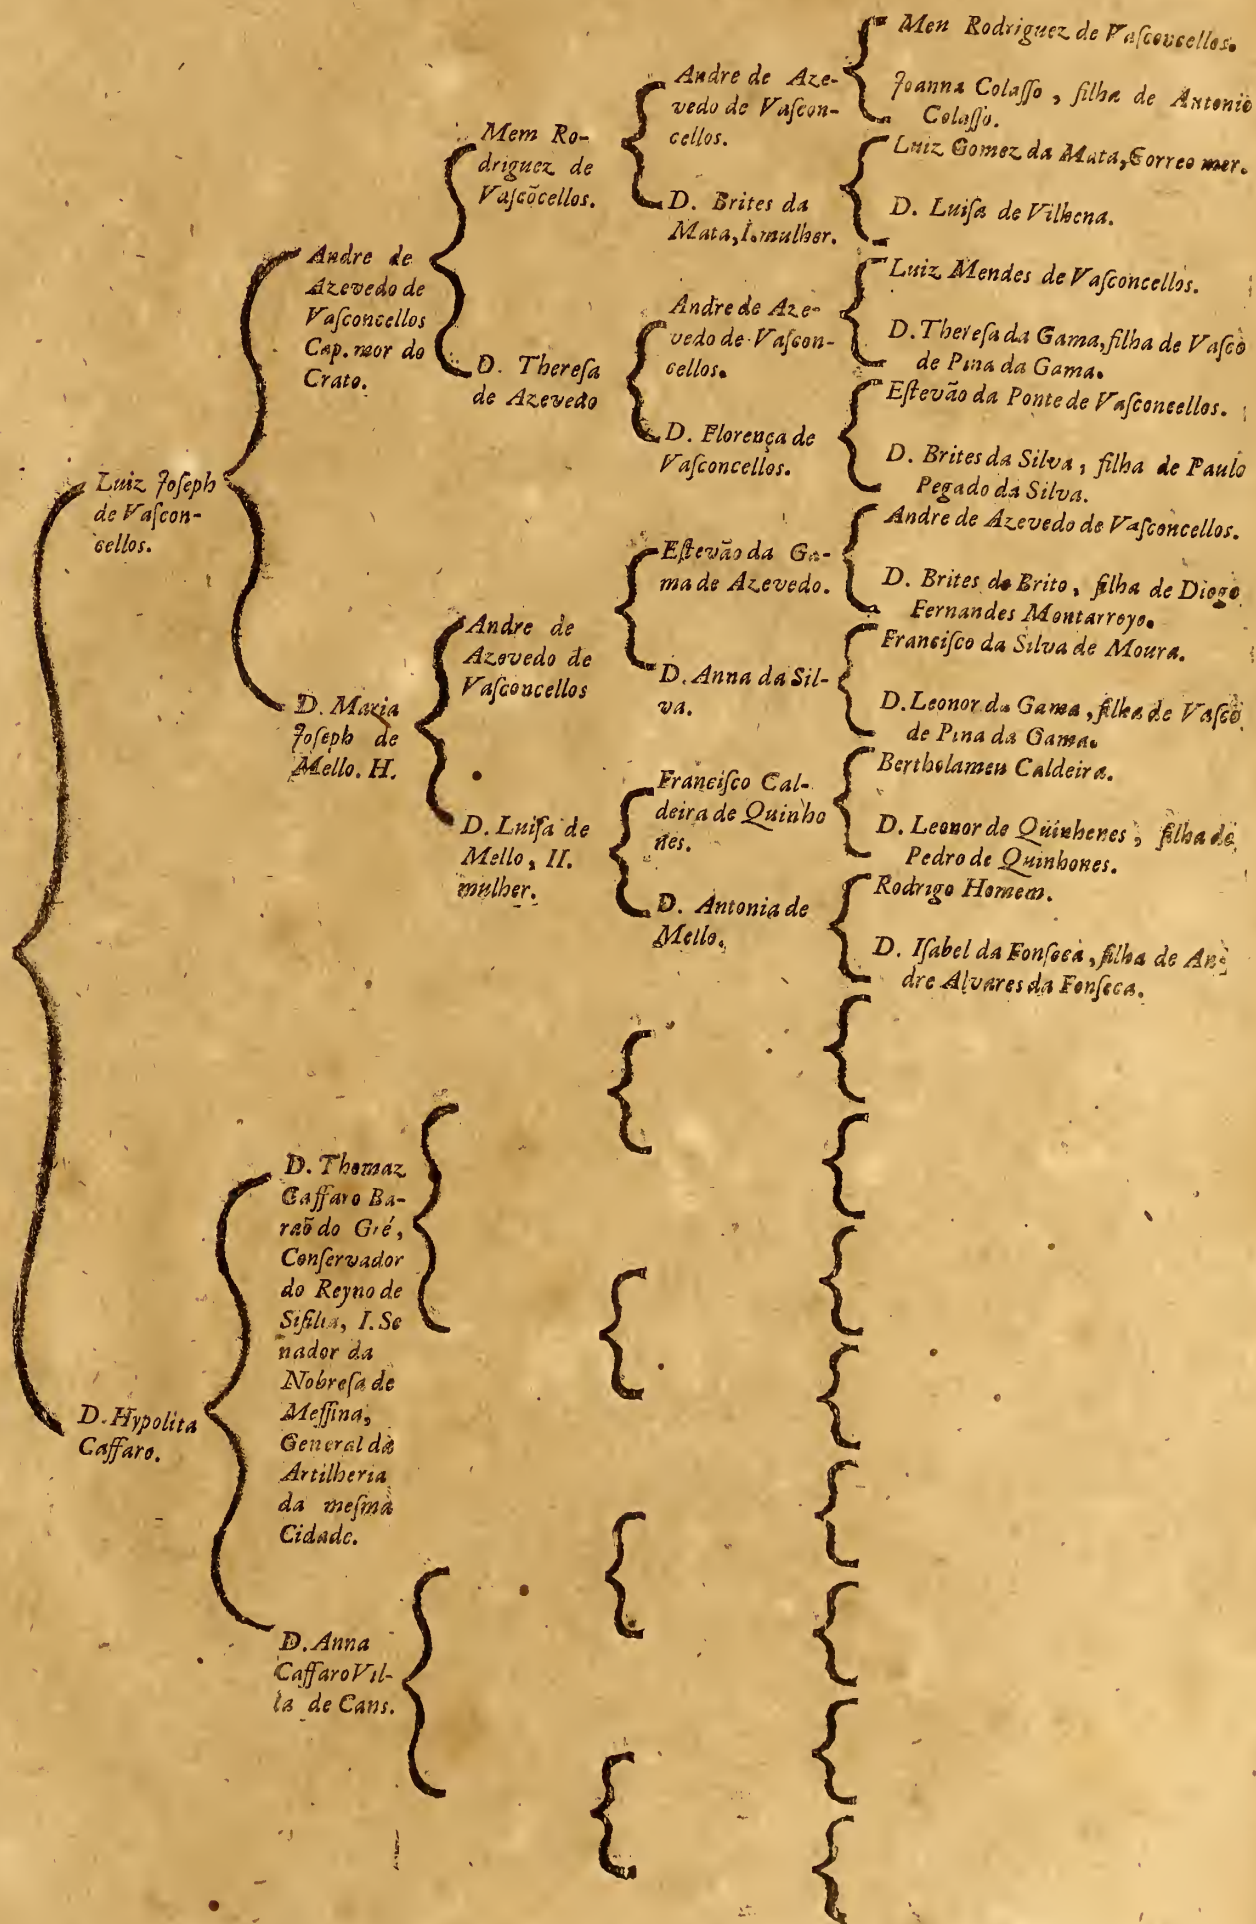 Luiz Joseph
de Vaſcon-
cellos.
D. Hypolita
Caffaro.
Andre de
Azevedo de
Vaſconcellos
Cap. mor do
Crato.
D. Maria
Joſeph de
Mello. H.
D. Thomaz
Caffaro Ba-
raõ do Gré,
Conſervador
do Reyno de
Siſilia, I. Se
nador da
Nobreſa de
Meſſina,
General da
Artilheria
da meſma
Cidade.
D. Anna
Caffaro Vil-
la de Cans.
Mem Ro-
driguez de
Vaſcõcellos.
D. Thereſa
de Azevedo
Andre de
Azevedo de
Vaſconcellos
D. Luiſa de
Mello, II.
mulher.
Andre de Aze-
vedo de Vaſcon-
cellos.
D. Brites da
Mata, I. mulher.
Andre de Aze-
vedo de Vaſcon-
cellos.
D. Florença de
Vaſconcellos.
Eſtevão da Ga-
ma de Azevedo.
D. Anna da Sil-
va.
Franciſco Cal-
deira de Quinho
nes.
D. Antonia de
Mello.
Men Rodriguez de Vaſconcellos.
Joanna Colaſſo, filha de Antonio
Colaſſo.
Luiz Gomez da Mata, Correo mor.
D. Luiſa de Vilhena.
Luiz Mendes de Vaſconcellos.
D. Thereſa da Gama, filha de Vaſco
de Pina da Gama.
Eſtevão da Ponte de Vaſconcellos.
D. Brites da Silva, filha de Paulo
Pegado da Silva.
Andre de Azevedo de Vaſconcellos.
D. Brites de Brito, filha de Diogo
Fernandes Montarroyo.
Franciſco da Silva de Moura.
D. Leonor da Gama, filha de Vaſco
de Pina da Gama.
Bertholameu Caldeira.
D. Leonor de Quinhenes, filha de
Pedro de Quinhones.
Rodrigo Homem.
D. Iſabel da Fonſeca, filha de An-
dre Alvares da Fonſeca.